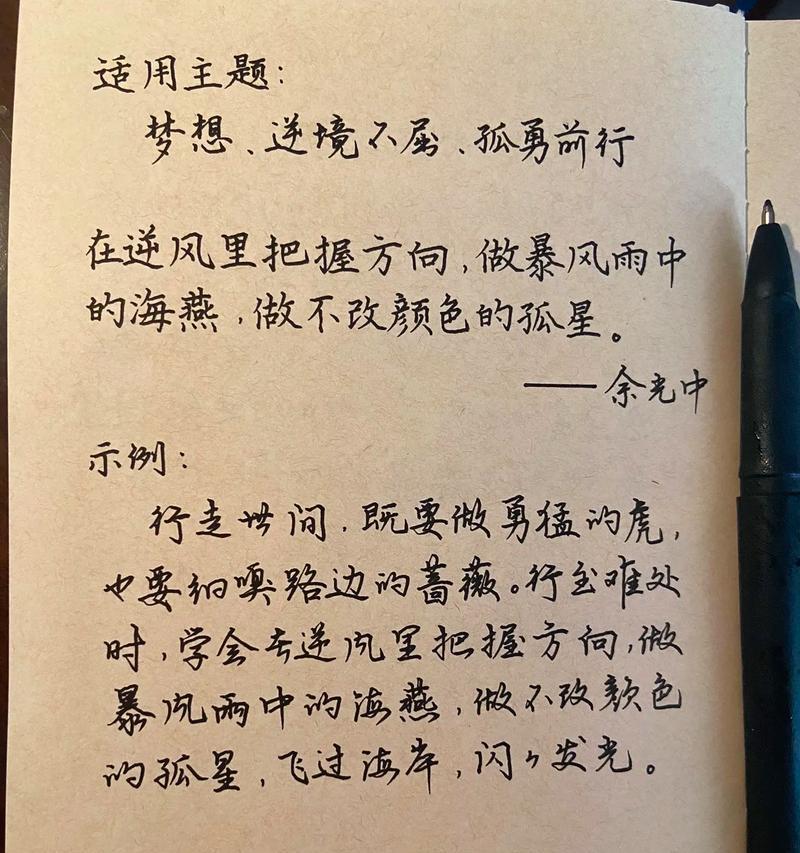 适用主题：
梦想、逆境不屈、孤勇前行
在逆风里把握方向，做暴风雨中
的海燕，做不改颜色的孤星。
——余光中
示例：
行走世间，既要做勇猛的虎，
也要细嗅路边的蔷薇。行至难处
时，学会在逆风里把握方向，做
暴风雨中的海燕，做不改颜色
的孤星，飞过海岸，闪々发光。